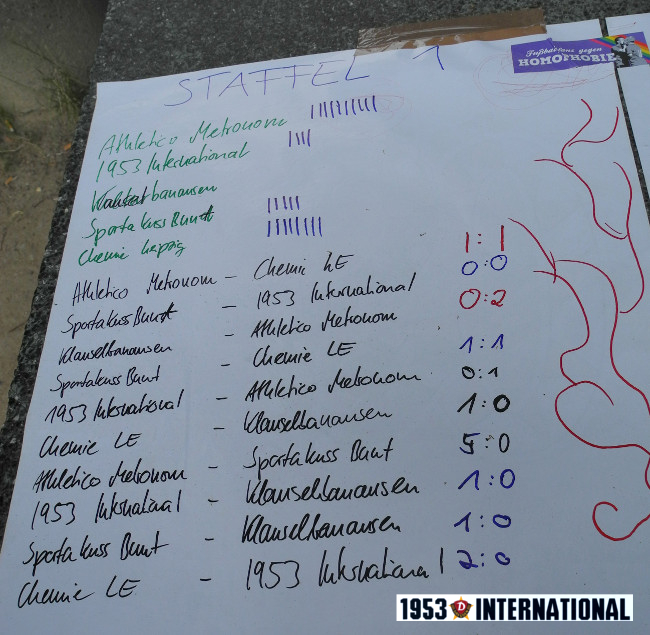 STAFFEL 1
Fußballfans gegen
HOMOPHOBIE
Athletico Metronom
1953 International
Klauselbanausen
Spartakuss Bunt
Chemie Leipzig
Athletico Metronom - Chemie LE 1:1
Spartakuss Bunt - 1953 International 0:0
Klauselbanausen - Athletico Metronom 0:2
Spartakuss Bunt - Chemie LE 1:1
1953 International - Athletico Metronom 0:1
Chemie LE - Klauselbanausen 1:0
Athletico Metronom - Spartakuss Bunt 5:0
1953 International - Klauselbanausen 1:0
Spartakuss Bunt - Klauselbanausen 1:0
Chemie LE - 1953 International 2:0
1953 D INTERNATIONAL